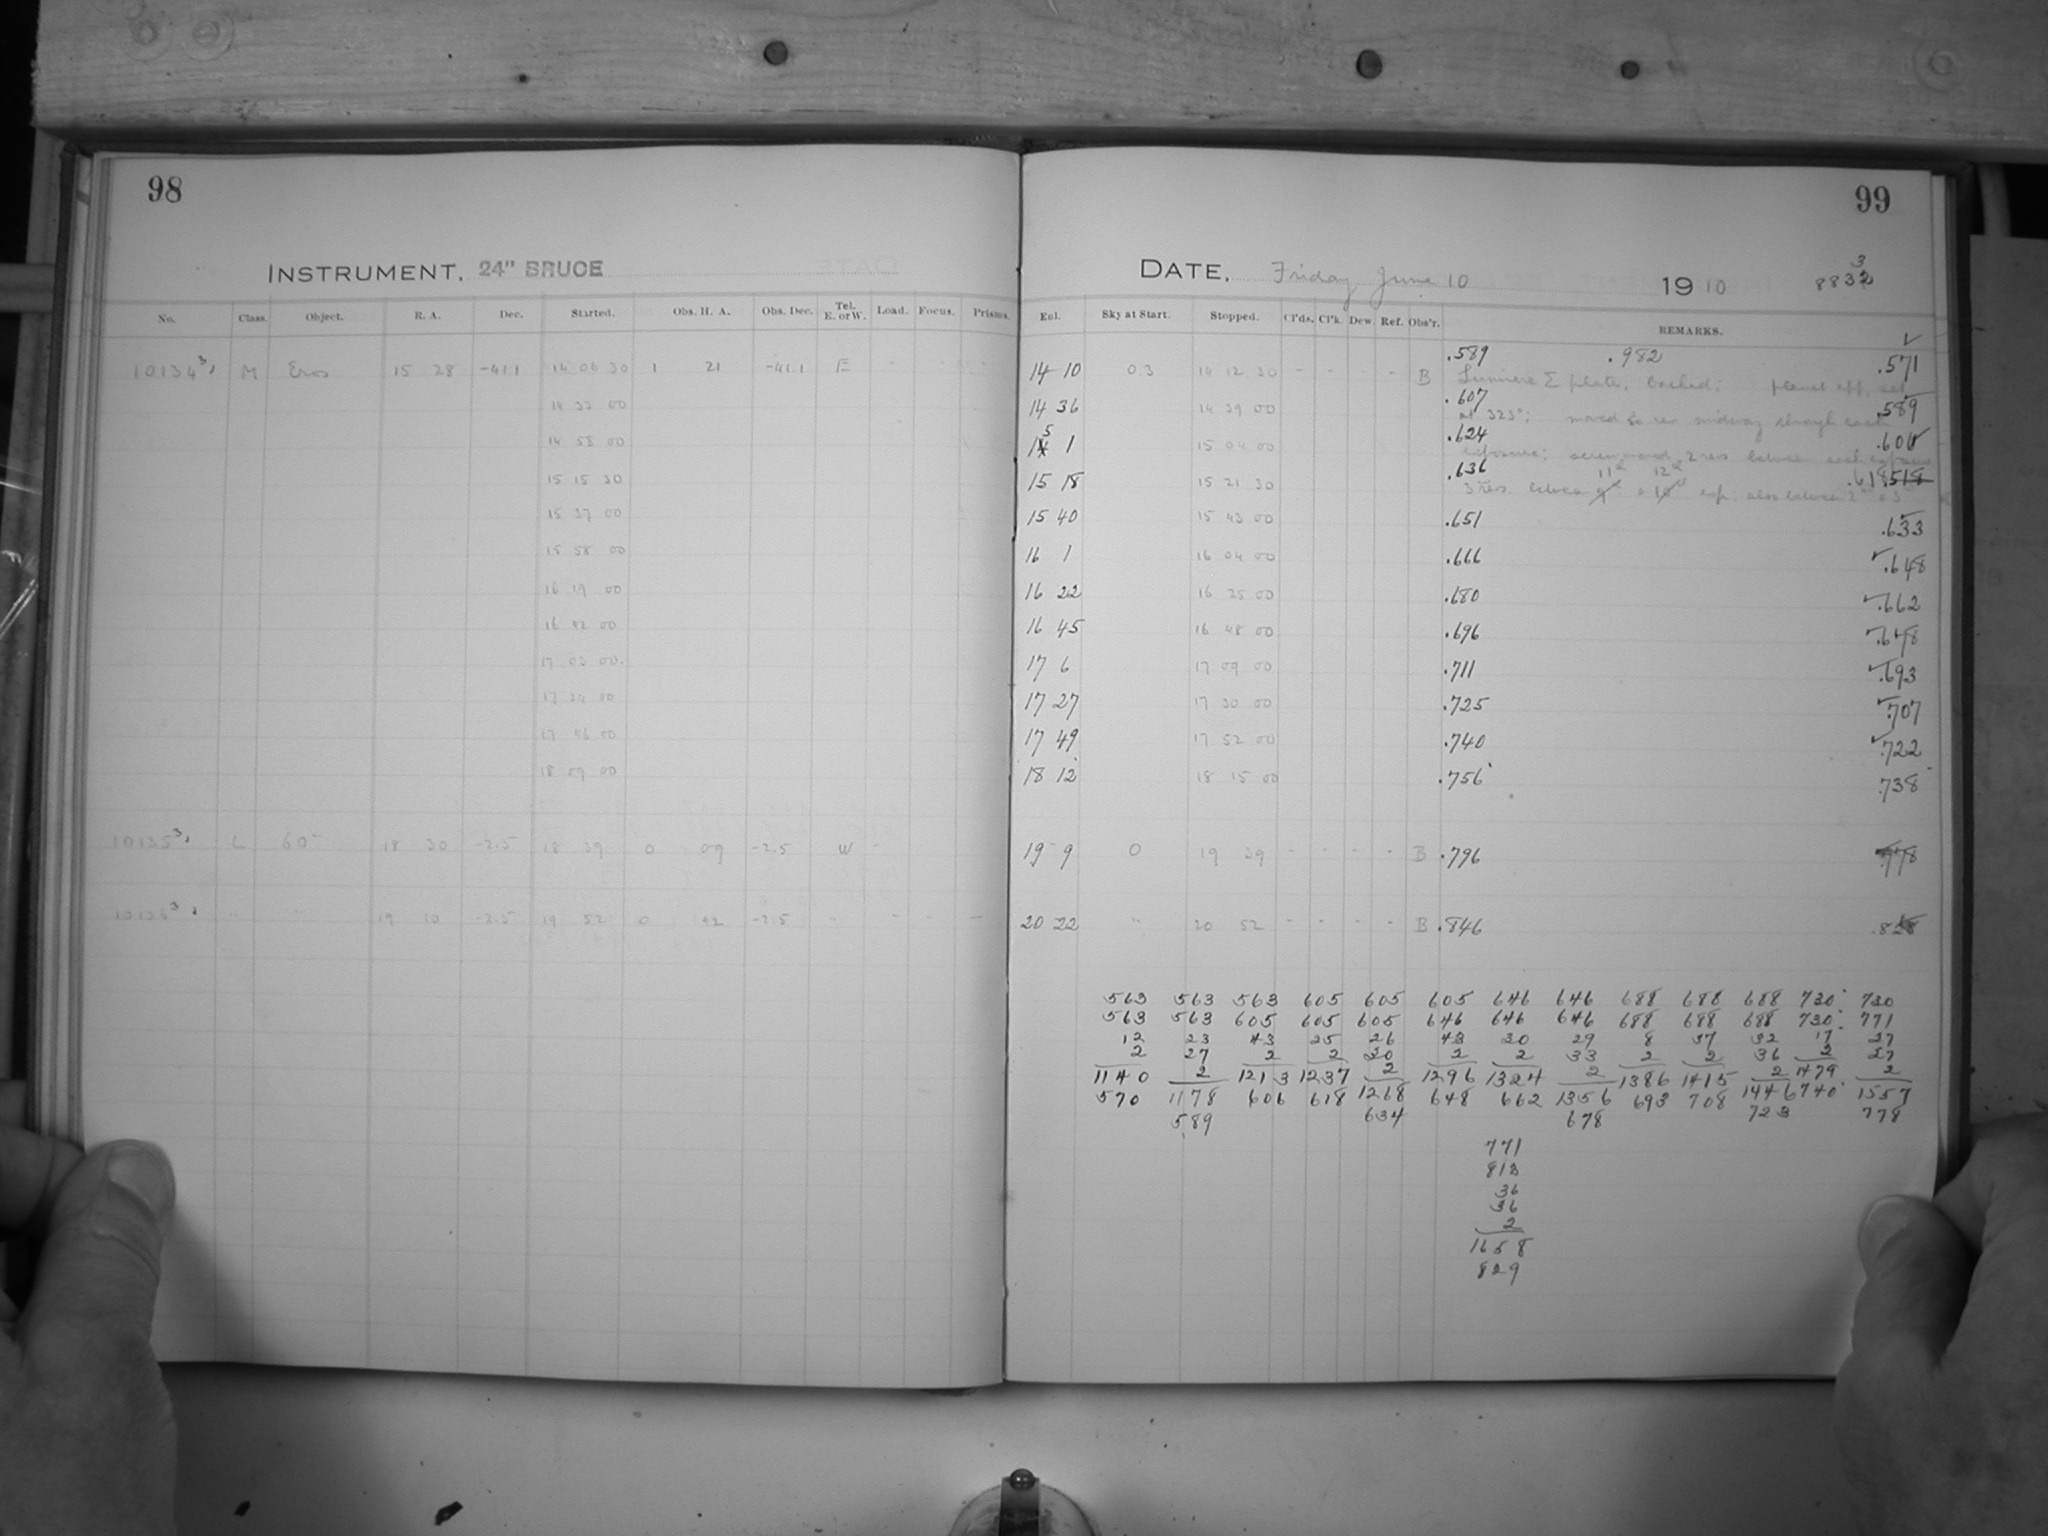 98
INSTRUMENT, 24" BRUCE
No. Class. Object. R. A. Dec. Started. Obs. H. A. Obs. Dec. Tel. E. or W. Load. Focus. Prisms.
10134 3, M Eros 15 28 -41.1 14 06 30 1 21 -41.1 E - - -
14 33 00
14 58 00
15 15 30
15 37 00
15 58 00
16 19 00
16 42 00
17 03 00.
17 24 00
17 46 00
18 09 00
10135 3, L 60 18 30 -2.5 18 39 0 09 -2.5 W -
10136 3, " " 19 10 -2.5 19 52 0 42 -2.5 - - - -
99
DATE, Friday June 10 1910 8832 3
Exl. Sky at Start. Stopped. Cl'ds. Cl'k. Dew. Ref. Obs'r. REMARKS.
.589 .982
14 10 0.3 14 12 30 - - - - B Lumiere Σ plate, backed; planet app. set .571
.607
14 36 14 39 00 at 323°; moved 20 rev midway through each .589
.624
15 1 15 04 00 exposure; screw moved 2 revs. between each exposure .606
.636 11th 12th
15 18 15 21 30 3 revs. between exp. also between 2 & 3 .618 518
15 40 15 43 00 .651 .633
16 1 16 04 00 .666 .648
16 22 16 25 00 .680 .662
16 45 16 48 00 .696 .678
17 6 17 09 00 .711 .693
17 27 17 30 00 .725 .707
17 49 17 52 00 .740 .722
18 12 18 15 00 .756 .738
19 9 0 19 39 - - - - B .796 .778
20 22 " 20 52 - - - - B .846 .828
563 563 563 605 605 605 646 646 688 688 688 730 730
563 563 605 605 605 646 646 646 688 688 688 730 771
12 23 43 25 26 43 30 29 8 37 32 17 27
2 27 2 2 30 2 2 33 2 2 36 2 27
1140 2 1213 1237 2 1296 1324 2 1386 1415 2 1479 2
570 1178 606 618 1268 648 662 1356 693 708 1446 740 1557
589 634 678 723 778
771
813
36
36
2
1658
829